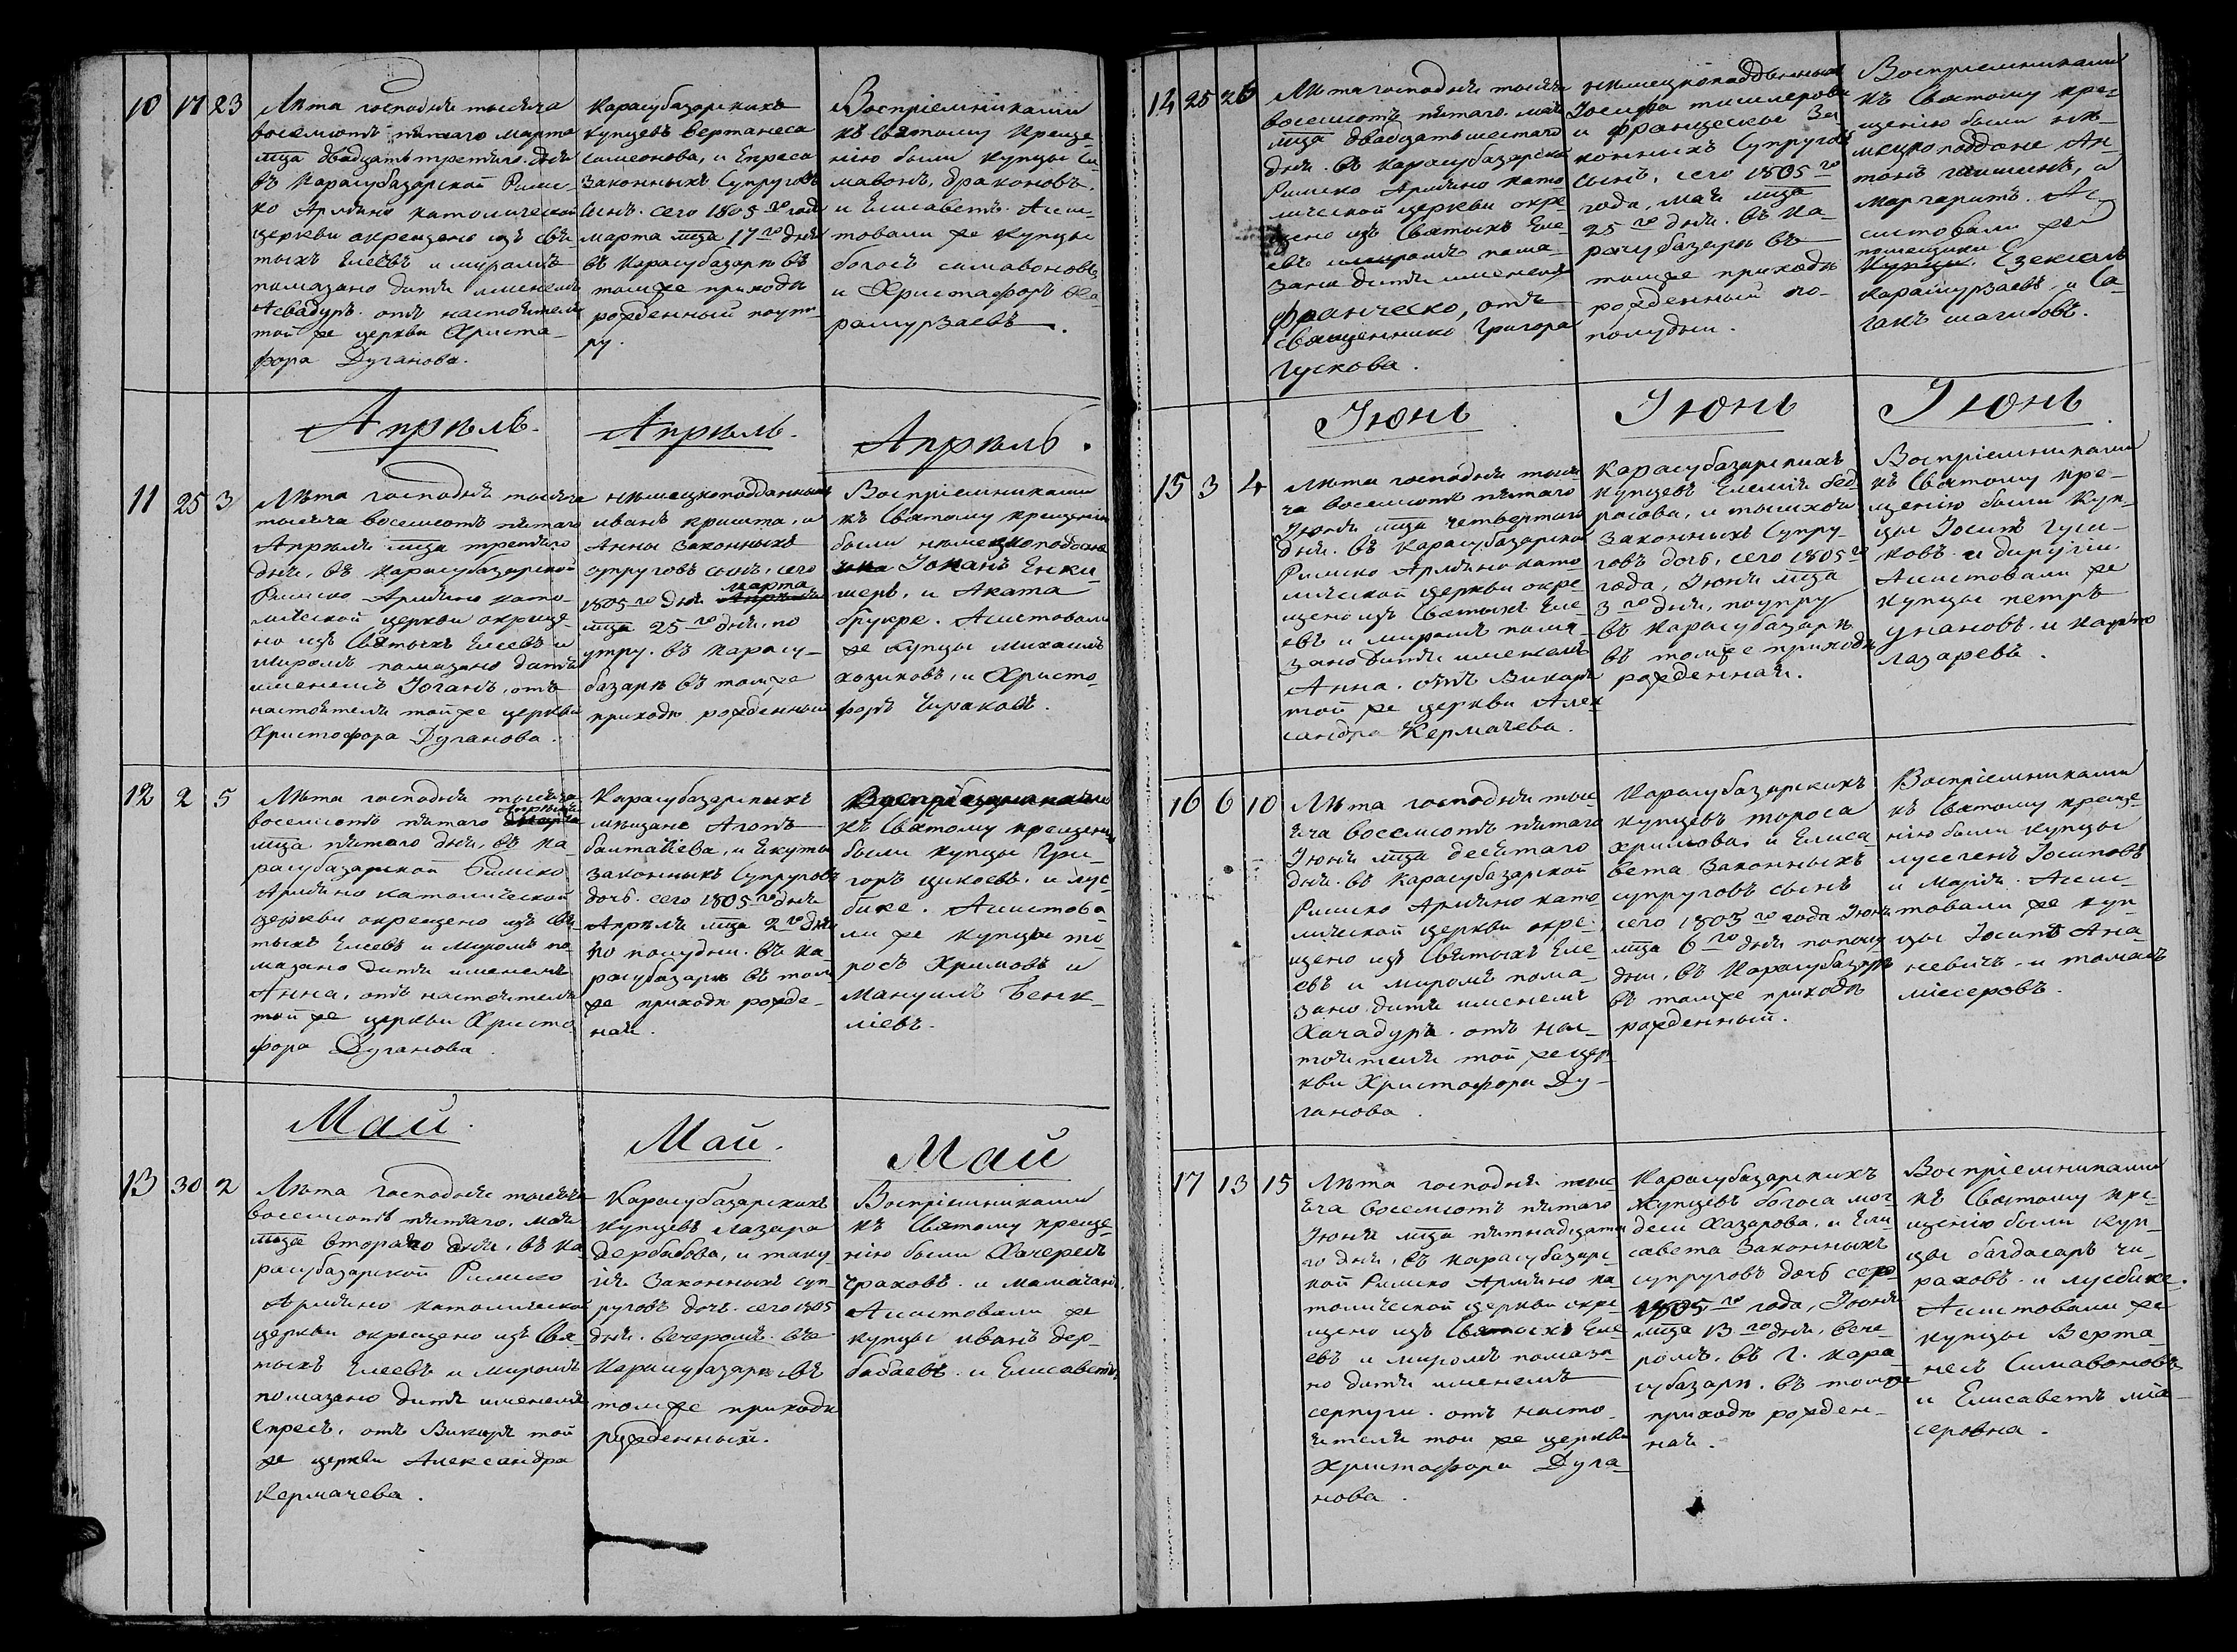 10 17 23
Лѣта господня тысяча
восемсотъ пятаго марта
мца двадцать третяго дня
въ Карасубазарской Римс-
ко Армяно католической
церкви окрещено изъ свя
тыхъ Елеевъ и миромъ
помазано дитя именемъ
Асвадуръ. отъ настоятеля
той же церкви Христа-
фора Дуганова.
Карасубазарскихъ
купцевъ Вертанеса
симеонова, и Епреса
Законныхъ Супруговъ
сынъ. сего 1805 го года
марта мца 17 го дня
въ Карасубазарѣ въ
томже приходѣ
рожденный поут
ру.
Воспріемниками
къ Святому Креще-
нію были купцы Си
мавонъ, драконовъ,
и Елисаветъ. Асси-
товали же купцы
богосъ симавоновъ
и Христафоръ Ка
рамурзаевъ.
Апрѣль.
Апрѣль.
Апрѣль.
11 25 3
Лѣта господня тысяча
тысяча восемсотъ пятаго
Апрѣля мца третяго
дня, въ Карасубазарской
Римско Армяно като
лической церкви окреще-
но изъ Святыхъ Елеевъ и
миромъ помазано дитя
именемъ Іоганъ, отъ
настоятеля той же церкви
Христофора Дуганова.
нѣмецкоподданныхъ
иванъ кришта, и
Анны законныхъ
супруговъ сынъ, сего
марта
1805 го дня Апрѣля
мца 25 го дня, по
утру. въ Карасу-
базарѣ въ томже
приходѣ рожденный
Воспріемниками
къ Святому крещенію
были нѣмецкоподдане
Іоканъ Енки-
шеръ, и Аката
брукре. Асистовали
же купцы михаилъ
хозиковъ, и Христо-
форъ Чираковъ.
12 2 5
Лѣта господня тысяча
Апрѣля
восемсотъ пятаго Марта
мца пятаго дня, въ Ка-
расубазарской Римско
Армяно католической
церкви окрещено изъ Свя
тыхъ Елеевъ и миромъ по
мазано дитя именемъ
Анна, отъ настоятеля
той же церкви Христо
фора Дуганова
Карасубазарскихъ
мѣщане Агопъ
балтаіева, и Екуты
законныхъ Супруговъ
дочь. сего 1805 го дня
Апрѣля мца 2 го дня
по полудни. въ Ка-
расубазарѣ въ том
же приходѣ рожде-
ная.
Воспріемниками
къ Святому крещенію
были купцы Гри-
горъ цикоевъ. и лус-
бике. Асистова-
ли же купцы то-
росъ Хримовъ и
Мануилъ Бенк-
ліевъ.
Май.
Май.
Май
13 30 2
Лѣта Господня тысяча
восемсотъ пятаго. мая
мца втораго дня, въ Ка
расубазарской Римско
Армяно католической
церкви окрещено изъ Свя
тыхъ Елеевъ и миромъ
помазано дитя именемъ
Епресъ, отъ Викаря той
же церкви Александра
Кермачева.
Карасубазарскихъ
купцевъ лазара
дербабова, и таку
ія Законныхъ суп-
руговъ дочъ. сего 1805
дня. вечеромъ. въ
Карасубазарѣ въ
томже приходѣ
рожденный.
Воспріемниками
къ Святому креще-
нію были Хачересъ
Чраковъ. и мамачанъ.
Асистовали же
купцы иванъ дер-
бабаевъ. и Елисаветъ.
14 25 26
Лѣта господня тысяча
восемсотъ пятаго. мая
мца двадцать шестаго
дня. въ Карасубазарской
Римско Армяно като-
лической церкви окре-
щено изъ Святыхъ Еле-
евъ и миромъ пома-
зано дитя именемъ
Франческо, отъ
священнико Григора
Гускова.
нѣмецкоподданныхъ
Іосифа тишлерова
и францескы За-
конныхъ Супруговъ
сынъ, сего 1805 го
года, мая мца
25 го дня. въ Ка-
расубазарѣ въ
томже приходѣ
рожденный по-
полудни.
Воспріемниками
къ Святому кре-
щенію были нѣ-
мецкоподдане Ан-
тонъ гаишенъ, и
маргаритъ. Ас-
систовали же
помещики
Купцы. Езекіелъ
Карамурзаевъ, и Са-
гакъ шагибовъ.
Іюнь
Іюнь
Іюнь
15 3 4
Лѣта господня тыся
ча восемсотъ пятаго
Іюня мца четвертаго
дня. въ Карасубазарской
Римско Армяно като
лической церкви окре
щено изъ Святыхъ Еле-
евъ и миромъ пома-
зано дитя именемъ
Анна. отъ Викаря
той же церкви Алек
сандра Кермачева.
Карасубазарскихъ
купцевъ Елемія бед-
росова, и
Законныхъ Супру-
говъ дочь, сего 1805 го
года, Іюня мца
3 го дня, поутру
въ Карасубазарѣ
въ томже приходѣ
рожденная.
Воспріемниками
къ Святому кре-
щенію были Куп-
цы Іосипъ Гуси-
ковъ. и диругіи.
Асистовали же
купцы петръ
унановъ. и
лазаревъ.
16 6 10
Лѣта господня тыс-
яча восемсотъ пятаго
Іюня мца десятаго
дня. въ Карасубазарской
Римско Армяно като
лической церкви окре-
щено изъ Святыхъ Еле-
евъ и миромъ пома-
зано дитя именемъ
Хачадуръ. отъ нас-
тоятеля той же цер
кви Христофора Ду-
ганова.
Карасубазарскихъ
купцевъ тороса
хримова, и Елиса
вета Законныхъ
супруговъ сынъ
сего 1805 го года Іюня
мца 6 го дня пополу
дни, въ Карасубазарѣ
въ томже приходѣ
рожденный.
Воспріемниками
къ Святому креще-
нію были купцы
мусегенъ Іосиповъ
и Марія. Асис-
товали же куп-
цы Іосипъ Ана-
невичъ. и томасъ
місеровъ.
17 13 15
Лѣта господня тыс
яча восемсотъ пятаго
Іюня мца пятнадцата
го дня, въ Карасубазарс-
кой Римско Армяно ка-
толической церкви окре-
щено изъ Святыхъ Еле
евъ и миромъ помаза-
но дитя именемъ
серпуги. отъ насто-
ятеля той же церкви
Христофора Дуга-
нова.
Карасубазарскихъ
Купцевъ богоса мог
деси Хазарова, и Ели
савета Законныхъ
супруговъ дочь сего
1805 го года, Іюня
мца 13 го дня, вече-
ромъ. въ г. Кара-
субазарѣ. въ томже
приходѣ рожден-
ная.
Воспріемниками
къ Святому кре-
щенію были куп-
цы багдасаръ чи-
раковъ. и лусбике.
Асистовали же
купцы Верта-
несъ Симавоновъ
и Елисаветъ мі-
серовна.